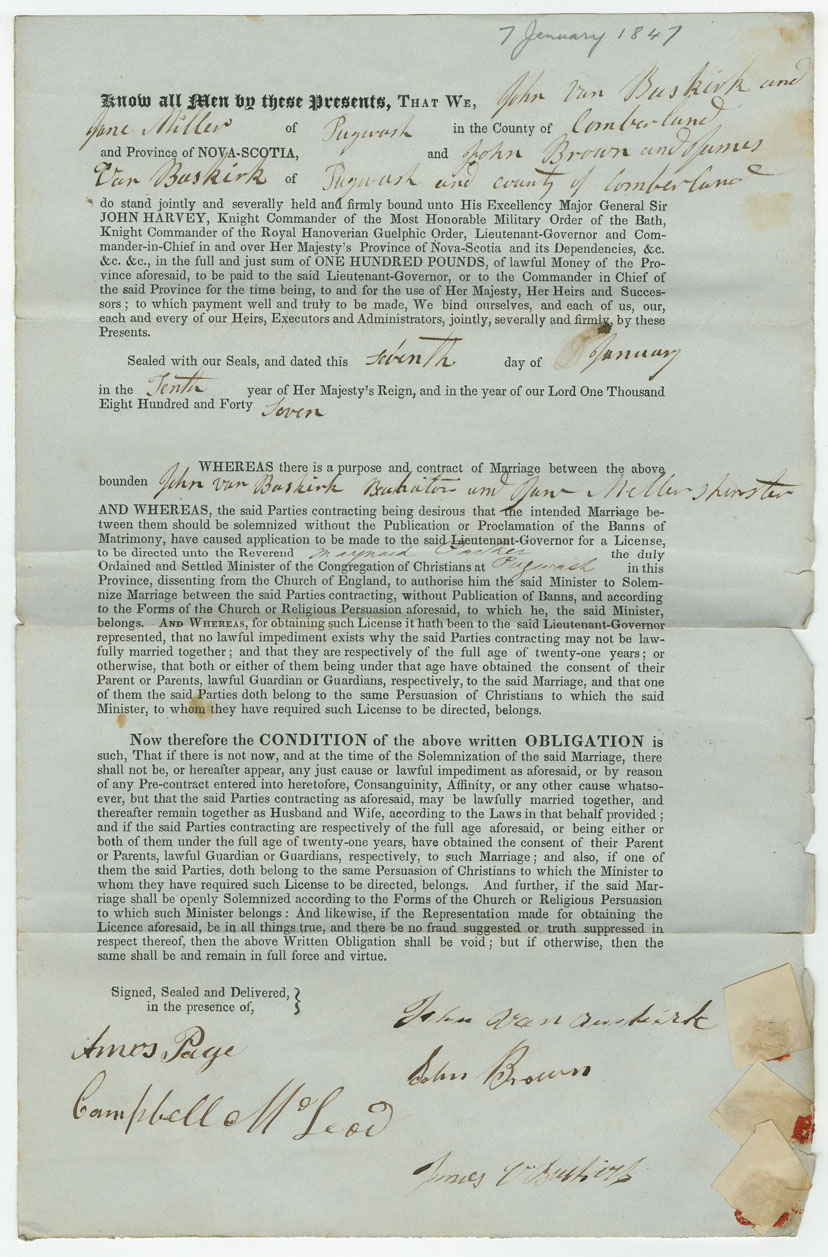 7 January 1847
Know all Men by these Presents, THAT WE, John Van Buskirk and
Jane Miller of Pugwash in the County of Comberland
and Province of NOVA-SCOTIA, and John Brown and James
Van Buskirk of Pugwash and county of Comberland
do stand jointly and severally held and firmly bound unto His Excellency Major General Sir
JOHN HARVEY, Knight Commander of the Most Honorable Military Order of the Bath,
Knight Commander of the Royal Hanoverian Guelphic Order, Lieutenant-Governor and Com-
mander-in-Chief in and over Her Majesty's Province of Nova-Scotia and its Dependencies, &c.
&c. &c., in the full and just sum of ONE HUNDRED POUNDS, of lawful Money of the Pro-
vince aforesaid, to be paid to the said Lieutenant-Governor, or to the Commander in Chief of
the said Province for the time being, to and for the use of Her Majesty, Her Heirs and Succes-
sors; to which payment well and truly to be made, We bind ourselves, and each of us, our,
each and every of our Heirs, Executors and Administrators, jointly, severally and firmly, by these
Presents.
Sealed with our Seals, and dated this seventh day of January
in the Tenth year of Her Majesty's Reign, and in the year of our Lord One Thousand
Eight Hundred and Forty Seven
WHEREAS there is a purpose and contract of Marriage between the above
bounden John van Buskirk and Jane Miller spinster
AND WHEREAS, the said Parties contracting being desirous that the intended Marriage be-
tween them should be solemnized without the Publication or Proclamation of the Banns of
Matrimony, have caused application to be made to the said Lieutenant-Governor for a License,
to be directed unto the Reverend Maynard Parker the duly
Ordained and Settled Minister of the Congregation of Christians at Pugwash in this
Province, dissenting from the Church of England, to authorise him the said Minister to Solem-
nize Marriage between the said Parties contracting, without Publication of Banns, and according
to the Forms of the Church or Religious Persuasion aforesaid, to which he, the said Minister,
belongs. AND WHEREAS, for obtaining such License it hath been to the said Lieutenant-Governor
represented, that no lawful impediment exists why the said Parties contracting may not be law-
fully married together; and that they are respectively of the full age of twenty-one years; or
otherwise, that both or either of them being under that age have obtained the consent of their
Parent or Parents, lawful Guardian or Guardians, respectively, to the said Marriage, and that one
of them the said Parties doth belong to the same Persuasion of Christians to which the said
Minister, to whom they have required such License to be directed, belongs.
Now therefore the CONDITION of the above written OBLIGATION is
such, That if there is not now, and at the time of the Solemnization of the said Marriage, there
shall not be, or hereafter appear, any just cause or lawful impediment as aforesaid, or by reason
of any Pre-contract entered into heretofore, Consanguinity, Affinity, or any other cause whatso-
ever, but that the said Parties contracting as aforesaid, may be lawfully married together, and
thereafter remain together as Husband and Wife, according to the Laws in that behalf provided;
and if the said Parties contracting are respectively of the full age aforesaid, or being either or
both of them under the full age of twenty-one years, have obtained the consent of their Parent
or Parents, lawful Guardian or Guardians, respectively, to such Marriage; and also, if one of
them the said Parties, doth belong to the same Persuasion of Christians to which the Minister to
whom they have required such License to be directed, belongs. And further, if the said Mar-
riage shall be openly Solemnized according to the Forms of the Church or Religious Persuasion
to which such Minister belongs: And likewise, if the Representation made for obtaining the
Licence aforesaid, be in all things true, and there be no fraud suggested or truth suppressed in
respect thereof, then the above Written Obligation shall be void; but if otherwise, then the
same shall be and remain in full force and virtue.
Signed, Sealed and Delivered,
in the presence of,
John Van Buskirk
Amos Page
John Brown
Campbell McLeod
James V Buskirk